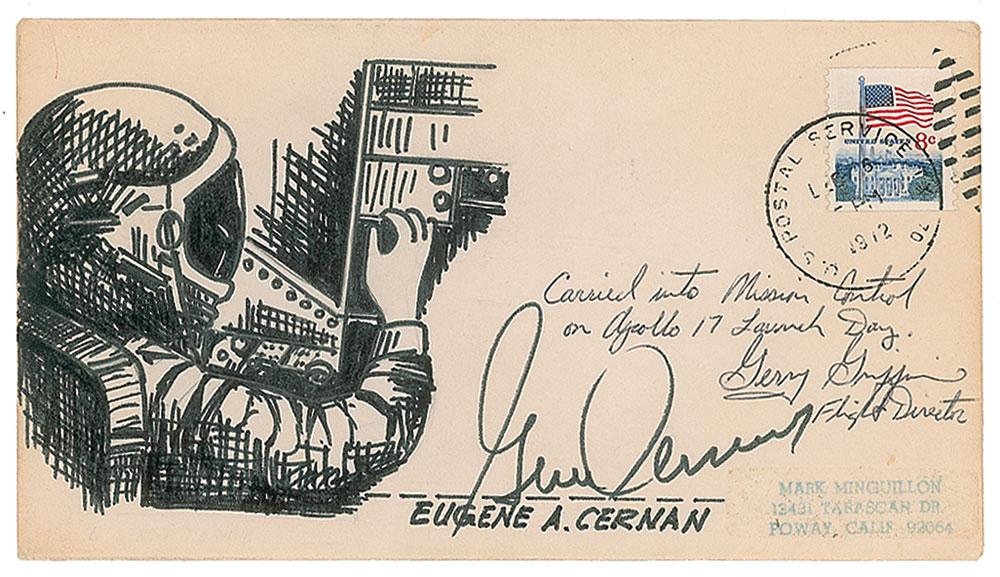 UNITED STATES 8c
U.S. POSTAL SERVICE
1972
Carried into Mission Control
on Apollo 17 Launch Day.
Gerry Griffin
Flight Director
Gene Cernan
EUGENE A. CERNAN
MARK MINGUILLON
13431 TARASCAN DR.
POWAY, CALIF. 92064